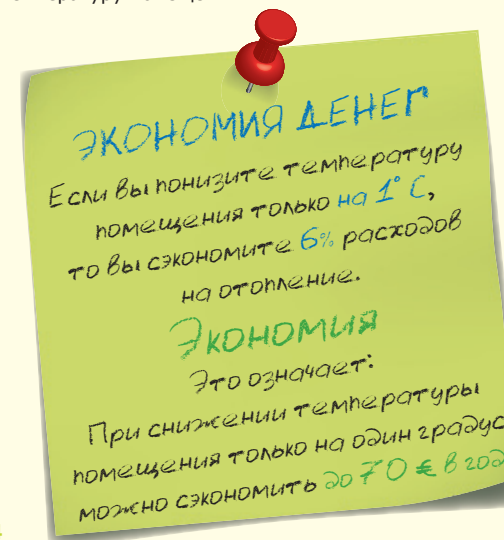 ЭКОНОМИЯ ДЕНЕГ
Если вы понизите температуру
помещения только на 1° C,
то вы сэкономите 6% расходов
на отопление.
Экономия
Это означает:
При снижении температуры
помещения только на один градус
можно сэкономить до 70 € в год